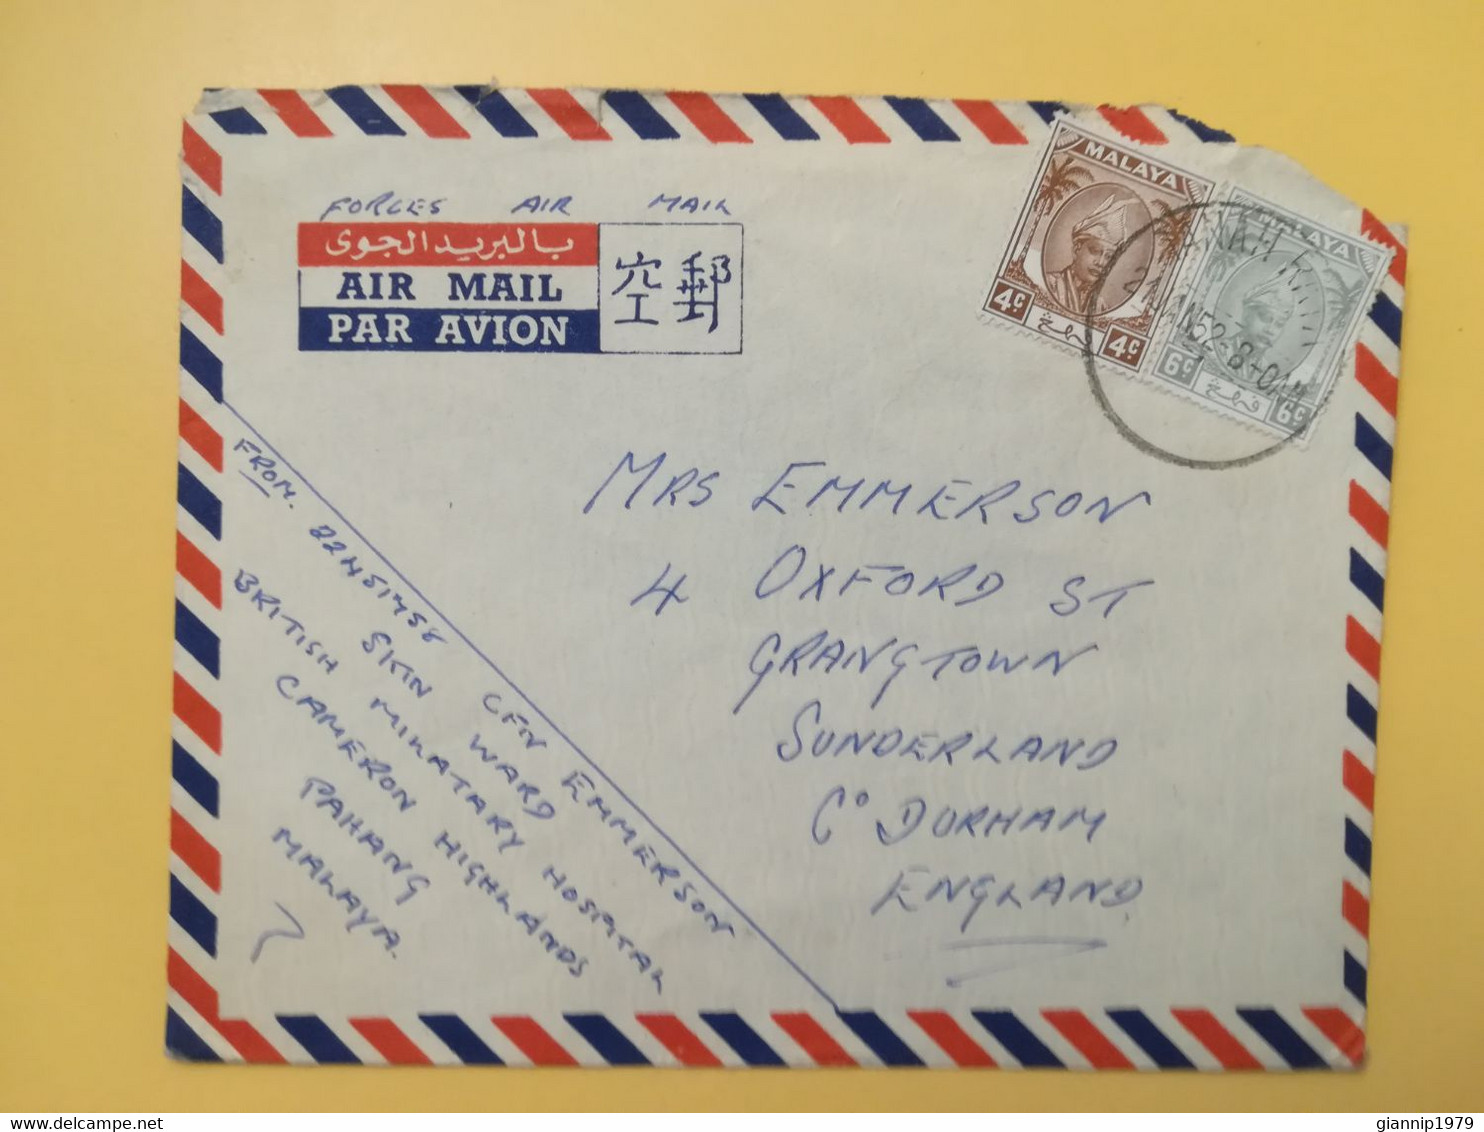 FORCES AIR MAIL
بالبريد الجوى
AIR MAIL
PAR AVION
空郵
MALAYA
4c 4c
MALAYA
6c 6c
52-8-0AM
MRS EMMERSON
4 OXFORD ST
GRANGTOWN
SUNDERLAND
Cº DURHAM
ENGLAND.
FROM. 22451758 CFN EMMERSON
SKIN WARD
BRITISH MILATARY HOSPITAL
CAMERON HIGHLANDS
PAHANG
MALAYA.
giannip1979
delcampe.net